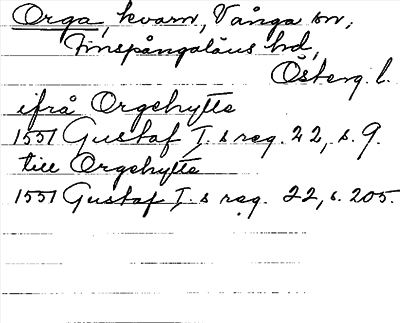 Orga, kvarn, Vånga sn,
Finspångaläns hd,
Österg. l.
ifrå Orgehytte
1551 Gustaf I. s reg. 22, s. 9.
till Orgehytte
1551 Gustaf I. s reg. 22, s. 205.